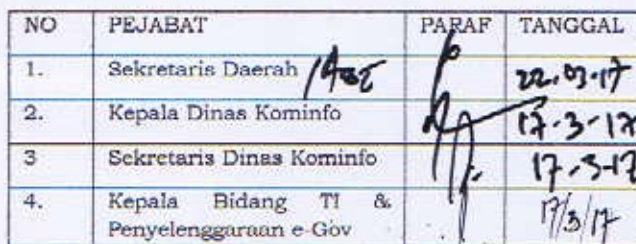 NO PEJABAT PARAF TANGGAL
1. Sekretaris Daerah 22.03.17
2. Kepala Dinas Kominfo 17-3-17
3 Sekretaris Dinas Kominfo 17-3-17
4. Kepala Bidang TI &
Penyelenggaraan e-Gov 17/3/17